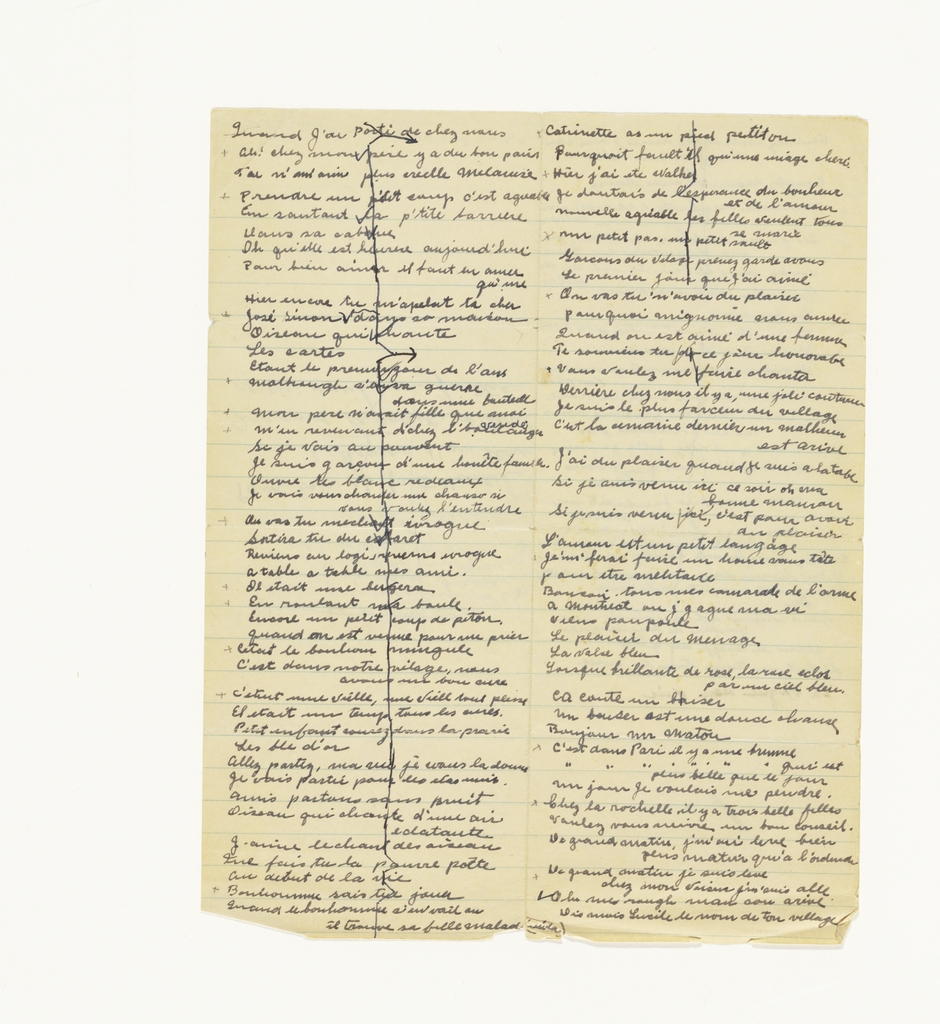 Quand J'ai parti de chez nous
+ Ah! chez mon père y a du bon pain
Tu n'm'aim plus cruelle Melanise
+ Prendre un p'tit coup c'est agueable
En sautant la p'tite barriere
Dans sa cabane
Oh qu'elle est heurese aujourd'hui
Pour bien aimer il faut en aimer
qu'une
Hier encore tu m'apelait ta cher
+ José Simon V dans sa maison
Oiseau qui chante
Les cartes
Etant le premier jour de l'ans
+ Malbrough s'en va guerre
dans une bouteill
+ Mon pere n'avait fille que moi
+ M'en revenant d'chez l'boulanger
Si je vais au couvent
Je suis garçon d'une honête famille.
Ouvre tes blanc redeaux
Je vais vous chanter une chanson si
vous voulez l'entendre
+ Ou vas tu mechant ivrogne
Sortira tu du cabaret
Reviens au logi, reviens ivrogne
a table a table mes ami.
+ Il etait une bergera
+ En roulant ma boule.
Encore un petit coup de piton.
quand on est venue pour me prier
+ C'etait le bonhom minguele
C'est dans notre vilage, nous
avons un bon cure
+ C'etait une vielle, une viell tout pleine
Il etait un temps, tous les cures.
Petit enfant courez dans la prarie
Les ble d'or
Allez partez, ma vie je vous la donne
Je vais partir pour les etas unis.
Amis partons sans bruit
Oiseau qui chante d'une air
eclatante
J'aime le chant des oiseau
Que fais tu la pauvre poête
Au debut de la vie
+ Bonhomme sais tu jouer
Quand le bonhomme s'en vait au
il trouve sa fille malad
+ Catrinette as un pied petiton
Pourquoit fault il qu'une nuage chere
+ Hier j'ai ete walker
Je doutais de l'esperance du bonheur
et de l'amour
nouvelle agréable les filles veulent tous
se marie
x un petit pas, un petit sault
Garcons du vilage prenez garde avous
Le premier jour que j'ai aimé
x On vas tu n'avoir du plaisir
Pourquoi mignonne nous aimer
Quand on est aimé d'une femme
Te souviens tu de ce jour honorable
• Vous voulez me faire chanter
Derrière chez nous il y a, une joli couturier
Je suis le plus farceur du village
C'est la semaine dernier un malheur
est arivé
J'ai du plaiser quand je suis a la table
Si je suis venu ici ce soir oh ma
bonne maman
Si je suis venu ici, c'est pour avoir
du plaisir
L'amour est un petit langage
+ Je m'ferai faire un home vous tête
pour etre militaire
Bonsoir tous mes camarade de l'armé
a Montreal ou j'gagne ma vi
Viens poupoule
Le plaisir du Menage
La Valse bleu
Lorsque brillante de rose, la rose eclos
par un ciel bleu.
Ca coute un baiser
un baiser est une douce chause
Bonjour Mr Matou
x C'est dans Pari il y a une brunne
" " " " " qui est
plus belle que le jour
un jour je voulais me pendre.
x Chez la rochelle il y a trois belle filles
Voulez vous suivre un bon conseil.
De grand matin, j'm'sui leve bien
plus matin qu'a l'ordinaire
+ De grand matin je suis leve
chez mon voisin j'm'suis alle
Oh me rough man son arivé
Dis mois Lucile le nom de ton village